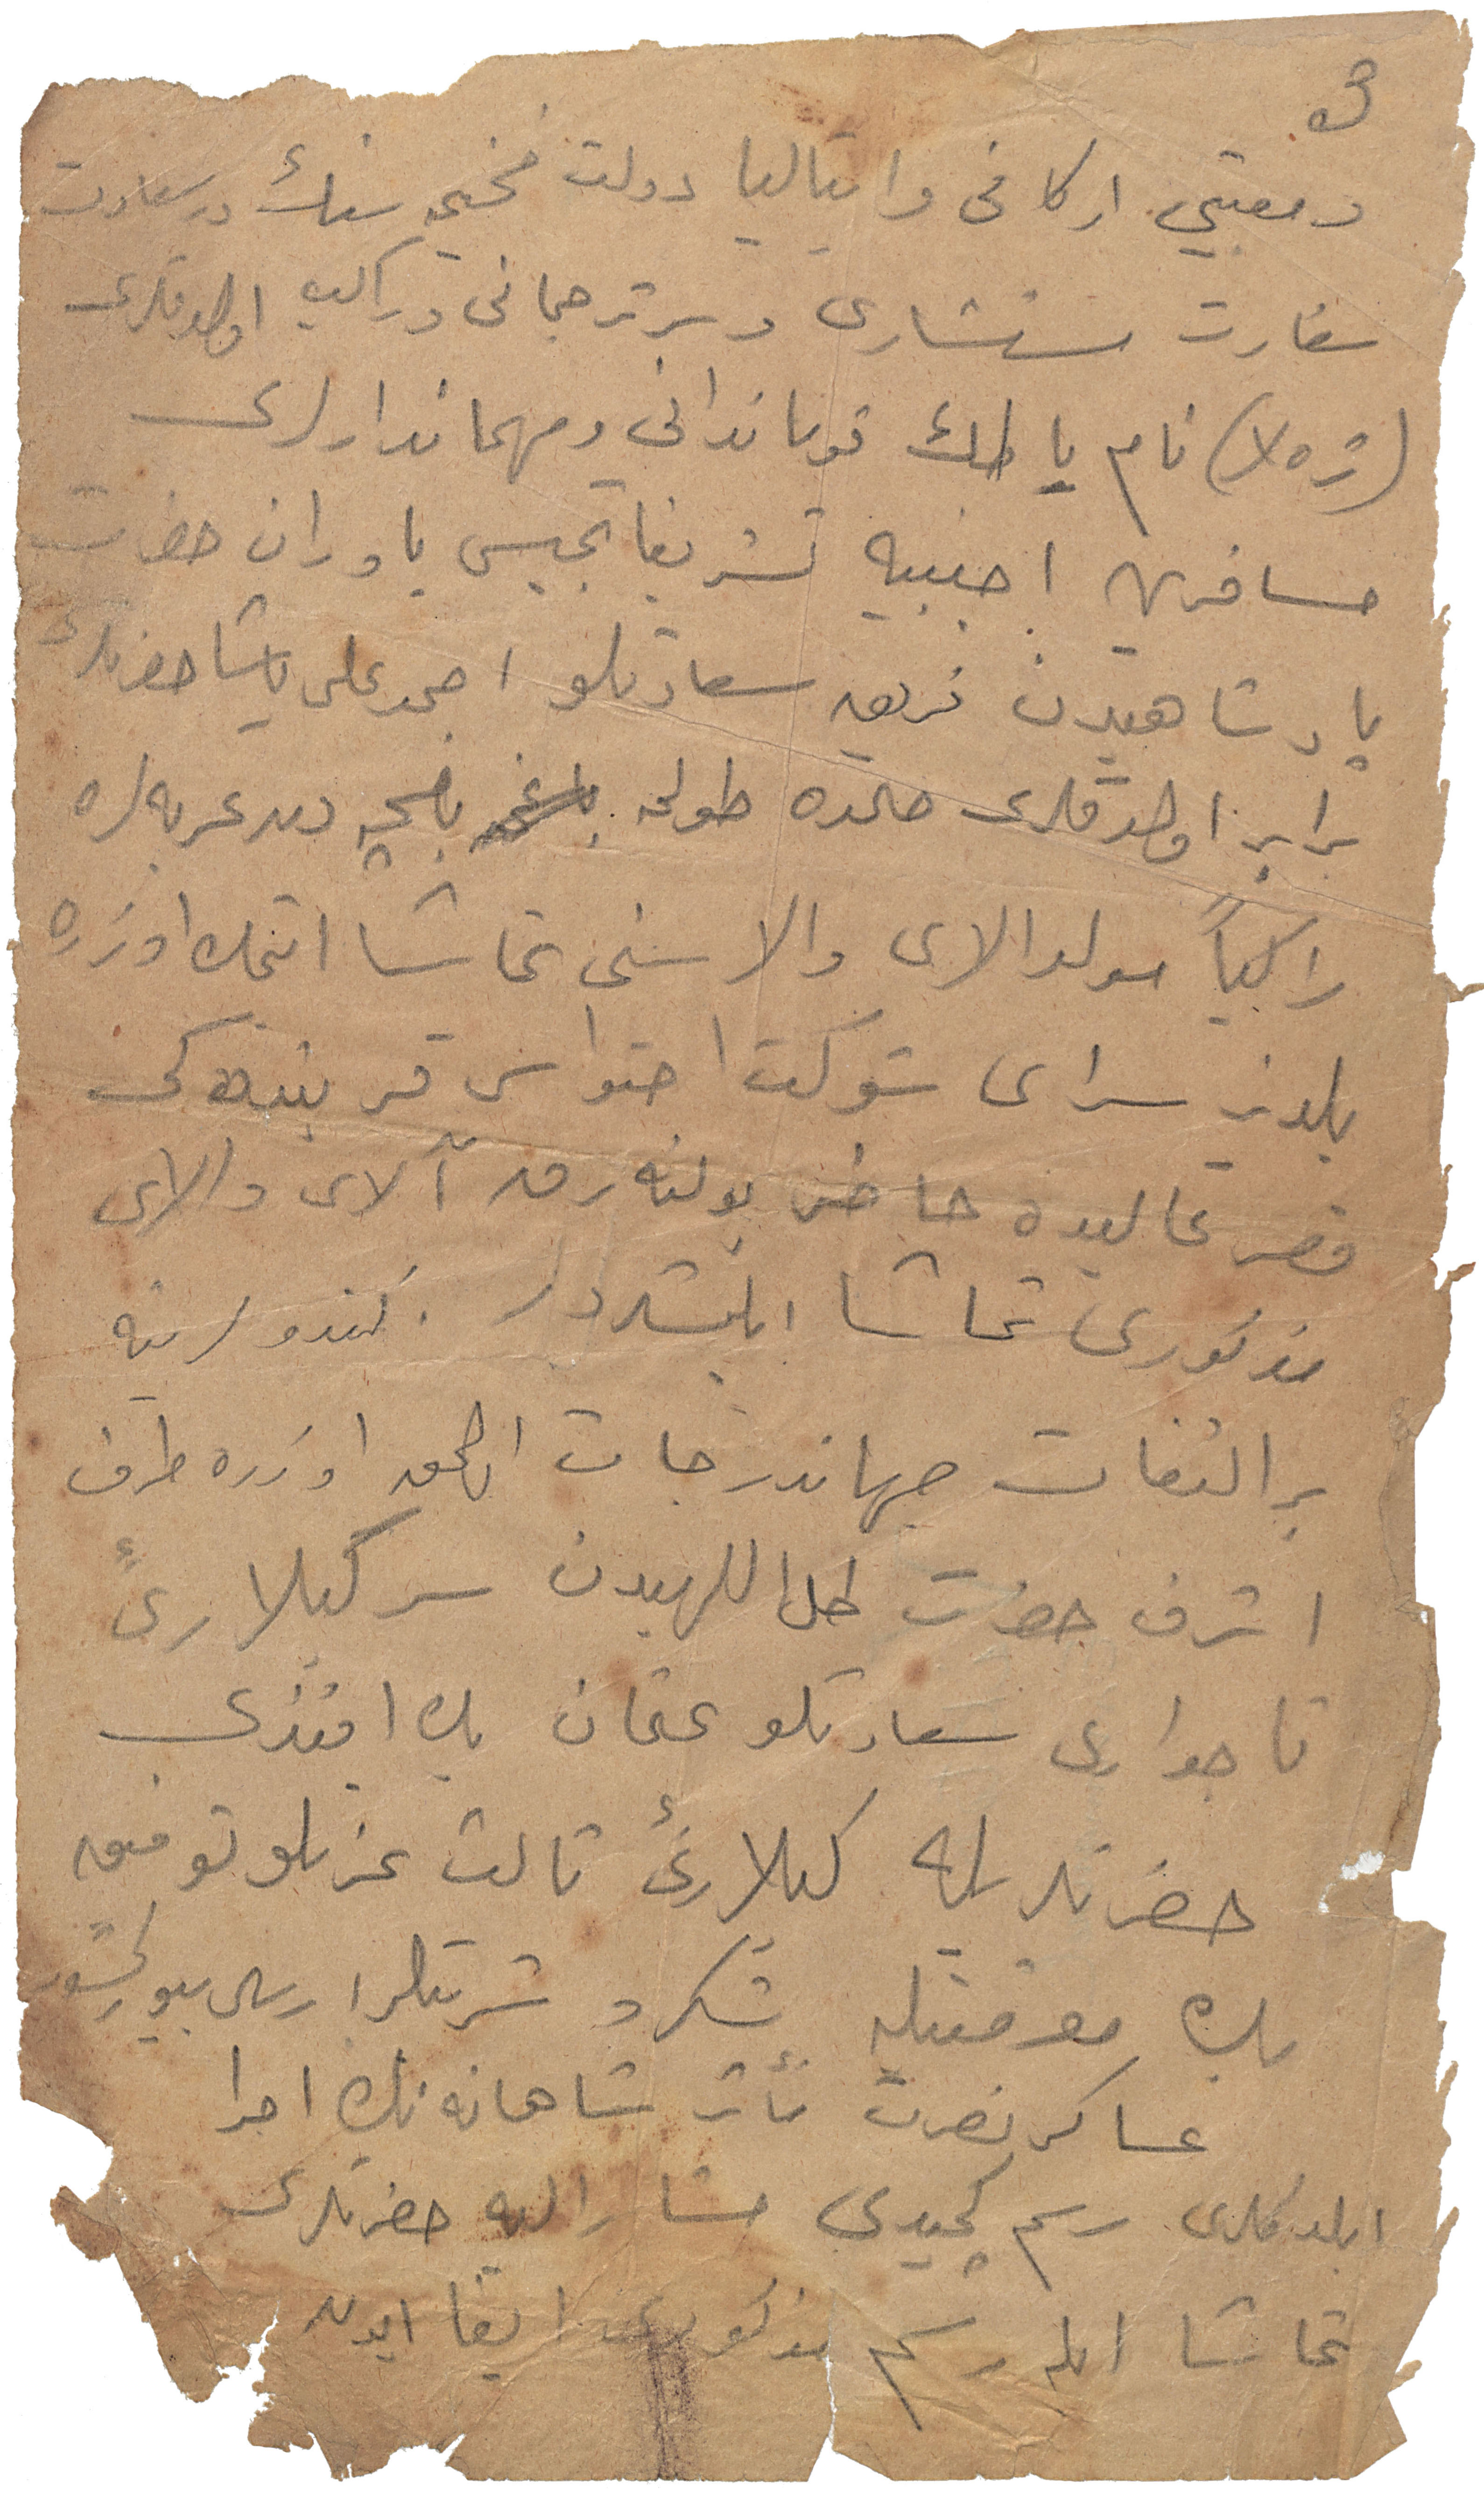 و معیتی ارکانی و ایتالیا دولت فخیمه سنك در سعادت
سفارت مستشاری و سر ترجمانی و راکب اولدقلری
نام یاطك قوماندانی و مهماندارلری
مسافرین اجنبیه تشریفاتجیسی یاوران حضرت
پادشاهیدن فریق سعادتلو احمد علی پاشا حضرتلری
برابر اولدقلری حالده طولمه باغچه دن عربه لره
راکباً مولد الای والاسنی تماشا اتمك اوزره
یلدیز سرای شوکت احتواسی قربنده کی
قصر عالیده حاضر بولنه رق آلای والای
مذکوری تماشا ایلمشلردر . کندولرینه
بر التفات جهاندرجات اولمق اوزره طرف
اشرف حضرت ظل اللهیدن سر کیلارئ
تاجداری سعادتلو عثمان بك افندی
حضرتلریله کیلارئ ثالث عزتلو توفیق
بك معرفتیله شکر و شربتلر ارسال بیورلمشدر
عساکر نصرت مآثر شاهانه نك اجرا
ایلدکلری رسم کچیدی مشار الیه حضرتلری
تماشا ایله رسم مذکورك ایفا ایدن